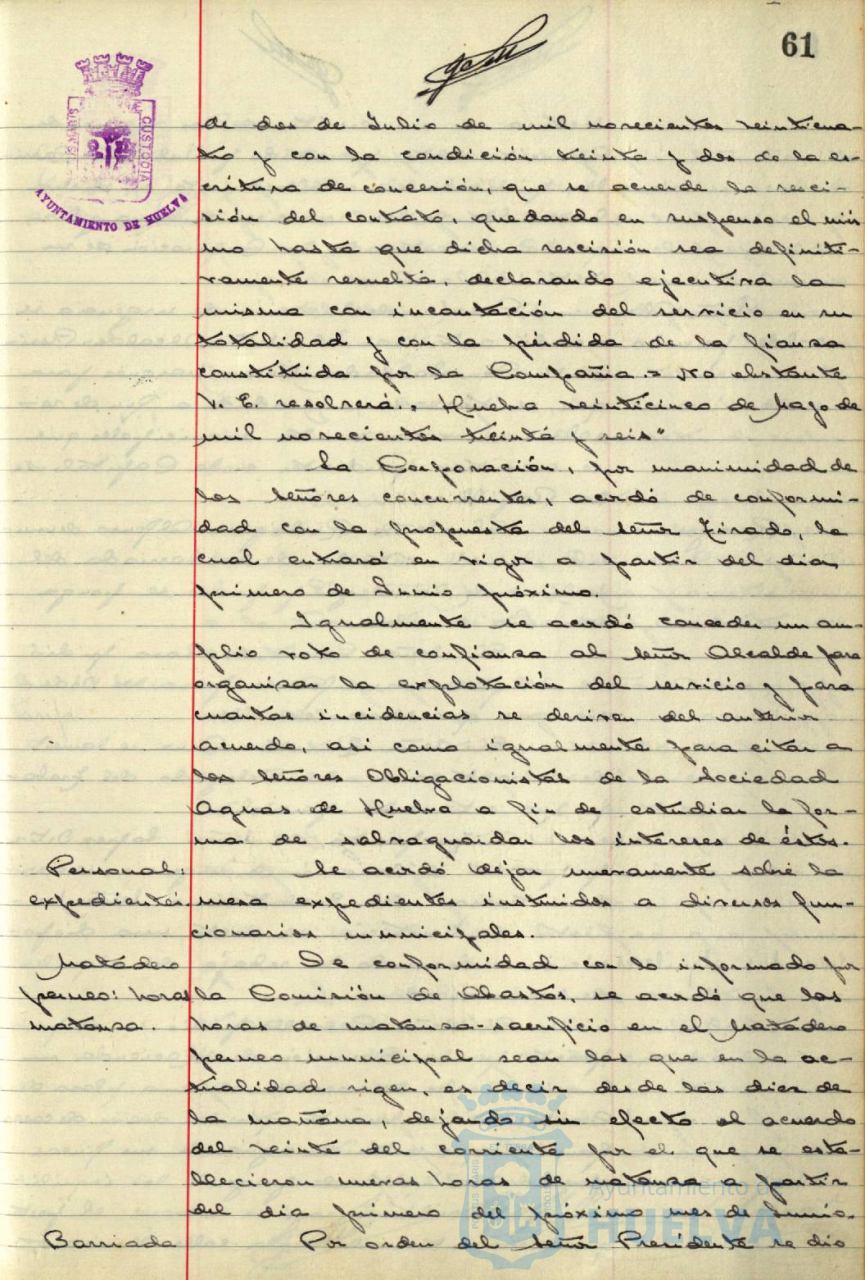 61
CUSTODIA
AYUNTAMIENTO DE HUELVA
de dos de Julio de mil novecientos veinticua-
tro y con la condición treinta y dos de la es-
critura de concesión, que se acuerde la resci-
sión del contrato, quedando en suspenso el mis
mo hasta que dicha rescisión sea definiti-
vamente resuelta, declarando ejecutiva la
misma con incautación del servicio en su
totalidad y con la pérdida de la fianza
constituida por la Compañia.= No obstante
V. E. resolverá., Huelva veinticinco de Mayo de
mil novecientos treinta y seis"
La Corporación, por unanimidad de
los señores concurrentes, acordó de conformi-
dad con la propuesta del señor Tirado, la
cual entrará en vigor a partir del dia
primero de Junio próximo.
Igualmente se acordó conceder un am-
plio voto de confianza al señor Alcalde para
organizar la explotación del servicio y para
cuantas incidencias se deriven del anterior
acuerdo, asi como igualmente para citar a
los señores Obligacionistas de la Sociedad
Aguas de Huelva a fin de estudiar la for-
ma de salvaguardar los intereses de éstos.
Personal: Se acordó dejar nuevamente sobre la
expedientes. mesa expedientes instruidos a diversos fun-
cionarios municipales.
Matadero De conformidad con lo informado por
perneo: horas la Comisión de Abastos, se acordó que las
matanza. horas de matanza-sacrificio en el Matadero
perneo municipal sean las que en la ac-
tualidad rigen, es decir desde las diez de
la mañana, dejando sin efecto el acuerdo
del veinte del corriente por el que se esta-
blecieron nuevas horas de matanza a partir
del dia primero del próximo mes de Junio.
Barriada Por orden del señor Presidente se dio
Ayuntamiento de
HUELVA